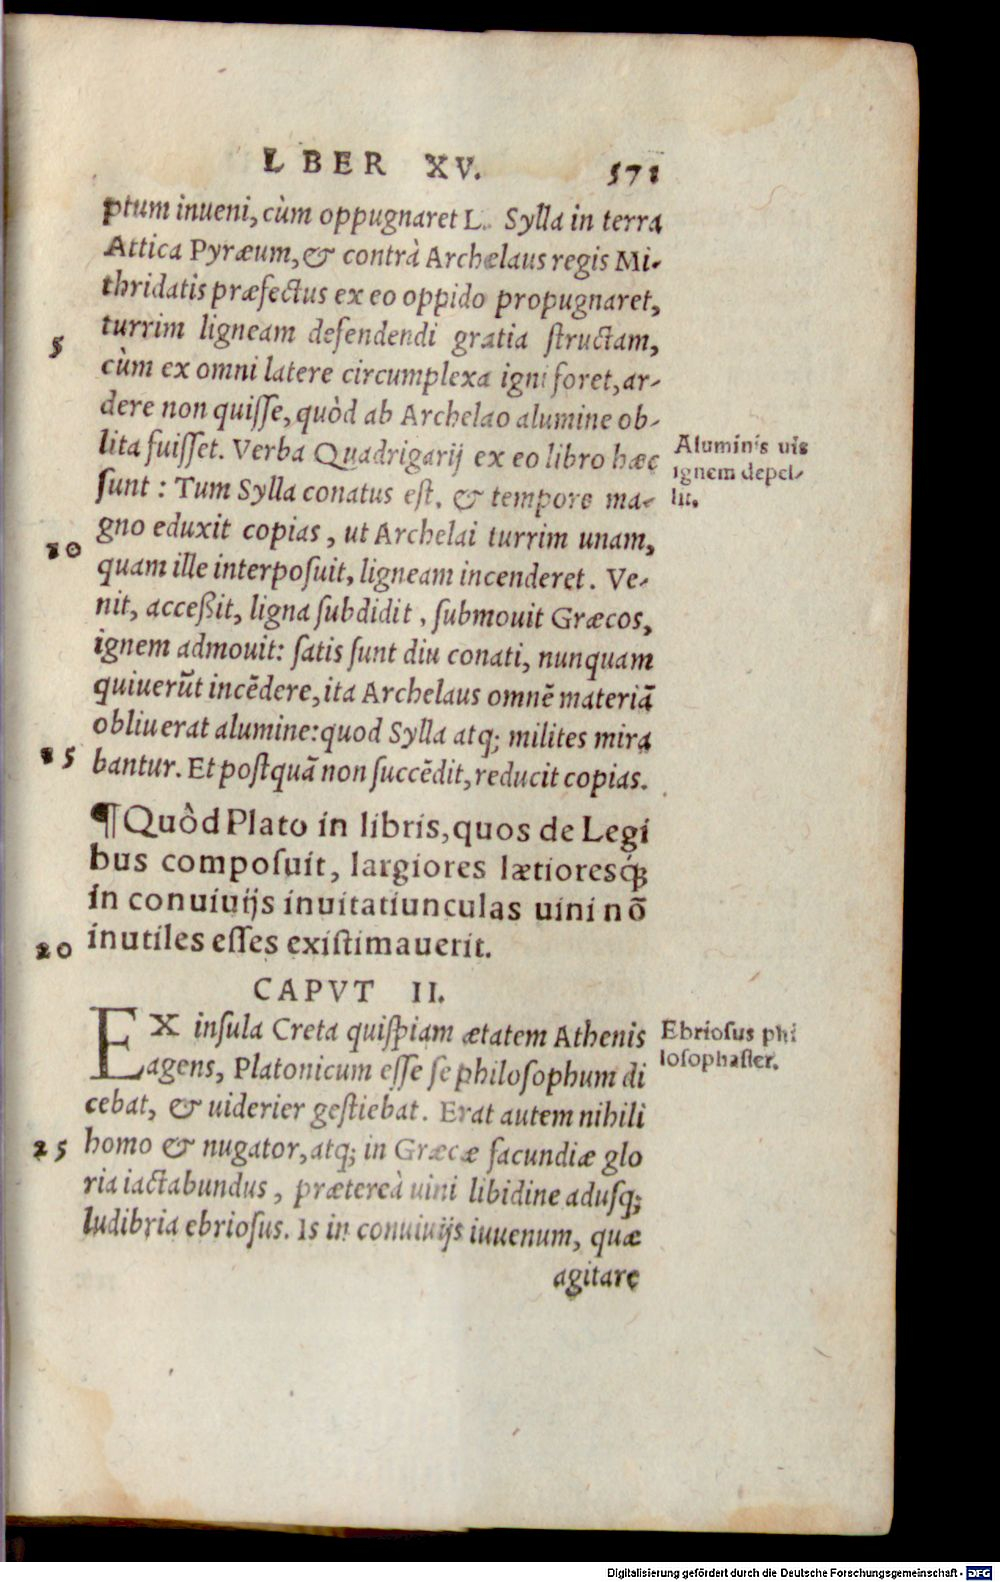 L BER XV. 571
ptum inueni, cùm oppugnaret L. Sylla in terra
Attica Pyræum, & contrà Archelaus regis Mi-
thridatis præfectus ex eo oppido propugnaret,
turrim ligneam defendendi gratia structam,
5
cùm ex omni latere circumplexa igni foret, ar-
dere non quisse, quòd ab Archelao alumine ob-
lita fuisset. Verba Quadrigarij ex eo libro hæc
Aluminis uis
ignem depel-
lit.
sunt : Tum Sylla conatus est, & tempore ma-
gno eduxit copias, ut Archelai turrim unam,
10
quam ille interposuit, ligneam incenderet. Ve-
nit, acceßit, ligna subdidit, submouit Græcos,
ignem admouit: satis sunt diu conati, nunquam
quiuerũt incẽdere, ita Archelaus omnẽ materiã
obliuerat alumine: quod Sylla atq; milites mira
15
bantur. Et postquã non succẽdit, reducit copias.
¶ Quòd Plato in libris, quos de Legi
bus composuit, largiores lætioresq́;
in conuiuijs inuitatiunculas uini nõ
inutiles esses existimauerit.
20
CAPVT II.
EX insula Creta quispiam ætatem Athenis
Ebriosus phi
losophaster.
agens, Platonicum esse se philosophum di
cebat, & uiderier gestiebat. Erat autem nihili
homo & nugator, atq; in Græcæ facundiæ glo
25
ria iactabundus, prætereà uini libidine adusq;
ludibria ebriosus. Is in conuiuijs iuuenum, quæ
agitare
Digitalisierung gefördert durch die Deutsche Forschungsgemeinschaft - DFG